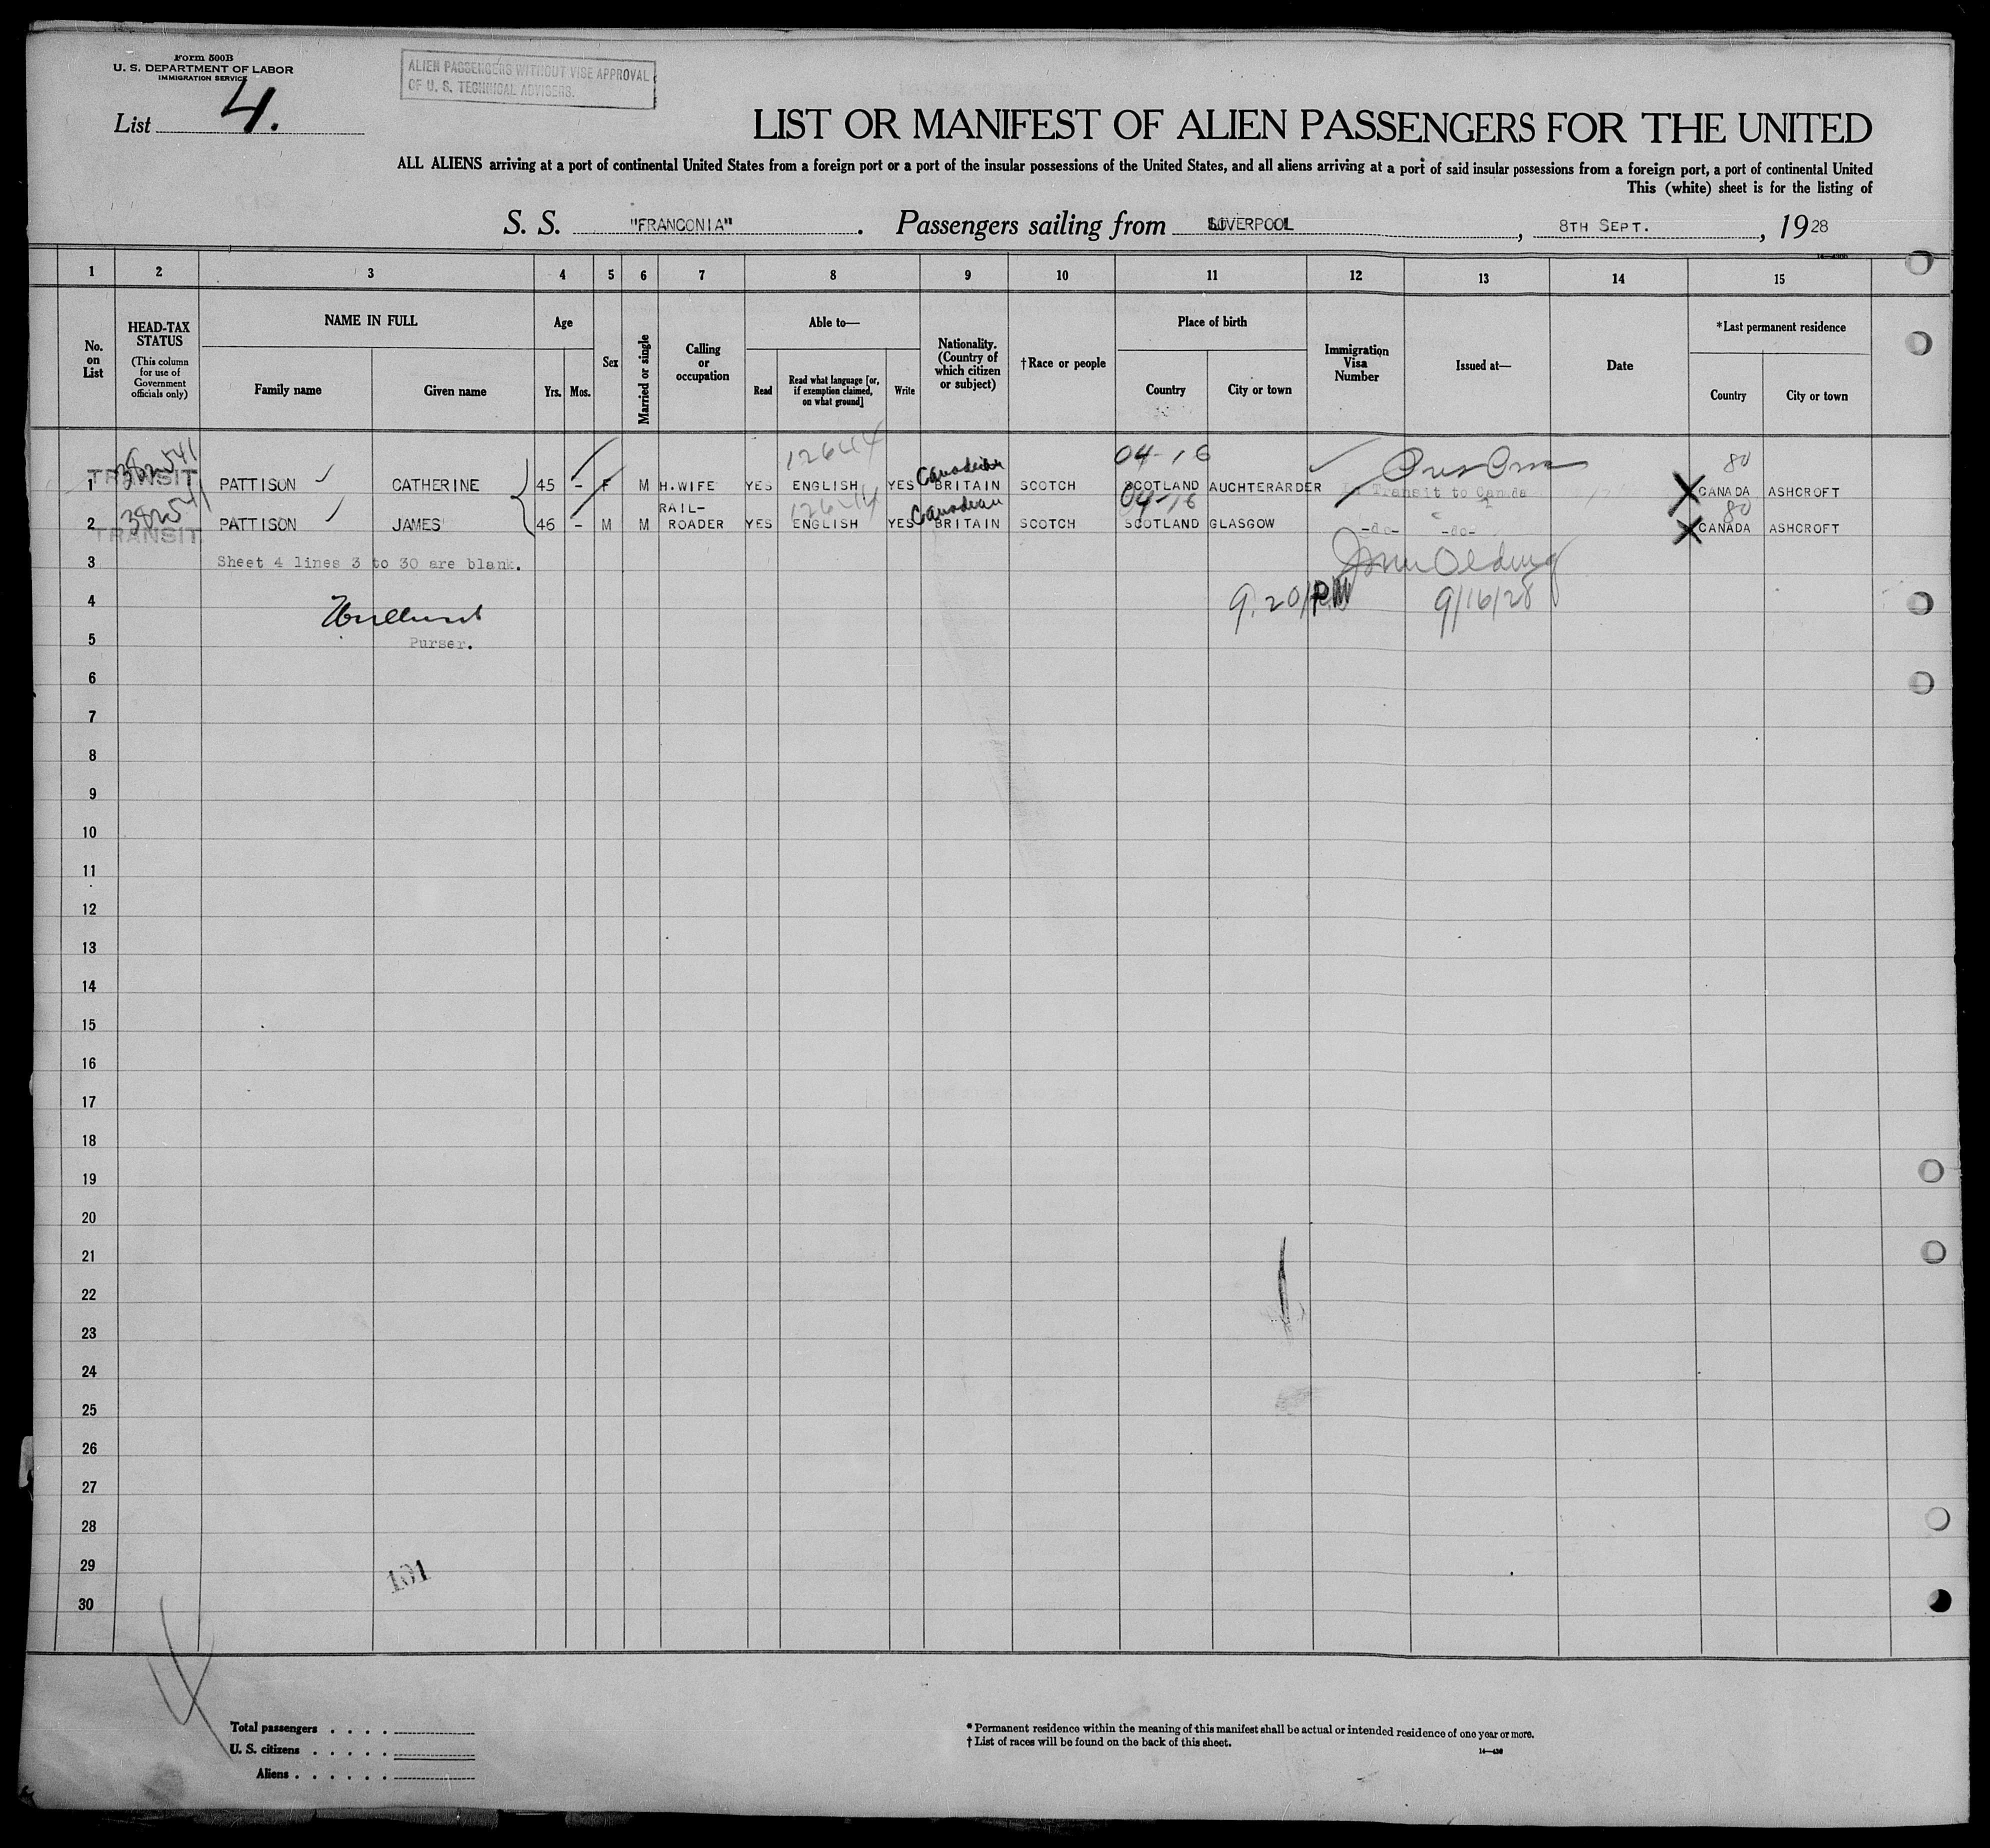 Form 500B
U. S. DEPARTMENT OF LABOR
IMMIGRATION SERVICE
ALIEN PASSENGERS WITHOUT VISE APPROVAL
OF U. S. TECHNICAL ADVISERS.
List 4.
LIST OR MANIFEST OF ALIEN PASSENGERS FOR THE UNITED
ALL ALIENS arriving at a port of continental United States from a foreign port or a port of the insular possessions of the United States, and all aliens arriving at a port of said insular possessions from a foreign port, a port of continental United
This (white) sheet is for the listing of
S. S. "FRANCONIA". Passengers sailing from LIVERPOOL, 8TH SEPT., 1928
1 2 3 4 5 6 7 8 9 10 11 12 13 14 15
No. on List
HEAD-TAX STATUS (This column for use of Government officials only)
NAME IN FULL
Family name
Given name
Age
Yrs.
Mos.
Sex
Married or single
Calling or occupation
Able to—
Read
Read what language [or, if exemption claimed, on what ground]
Write
Nationality. (Country of which citizen or subject)
†Race or people
Place of birth
Country
City or town
Immigration Visa Number
Issued at—
Date
*Last permanent residence
Country
City or town
12644 04-16 80
Canadian
1 TRANSIT PATTISON CATHERINE 45 - F M H.WIFE YES ENGLISH YES BRITAIN SCOTCH SCOTLAND AUCHTERARDER In Transit to Canada X CANADA ASHCROFT
12644 Canadian 04-16 80
2 TRANSIT PATTISON JAMES 46 - M M RAIL-ROADER YES ENGLISH YES BRITAIN SCOTCH SCOTLAND GLASGOW -do- -do- X CANADA ASHCROFT
3 Sheet 4 lines 3 to 30 are blank.
4 9.20 PM 9/16/28
5 Purser.
6
7
8
9
10
11
12
13
14
15
16
17
18
19
20
21
22
23
24
25
26
27
28
29
101
30
Total passengers . . . .
U. S. citizens . . . . .
Aliens . . . . . .
* Permanent residence within the meaning of this manifest shall be actual or intended residence of one year or more.
† List of races will be found on the back of this sheet.